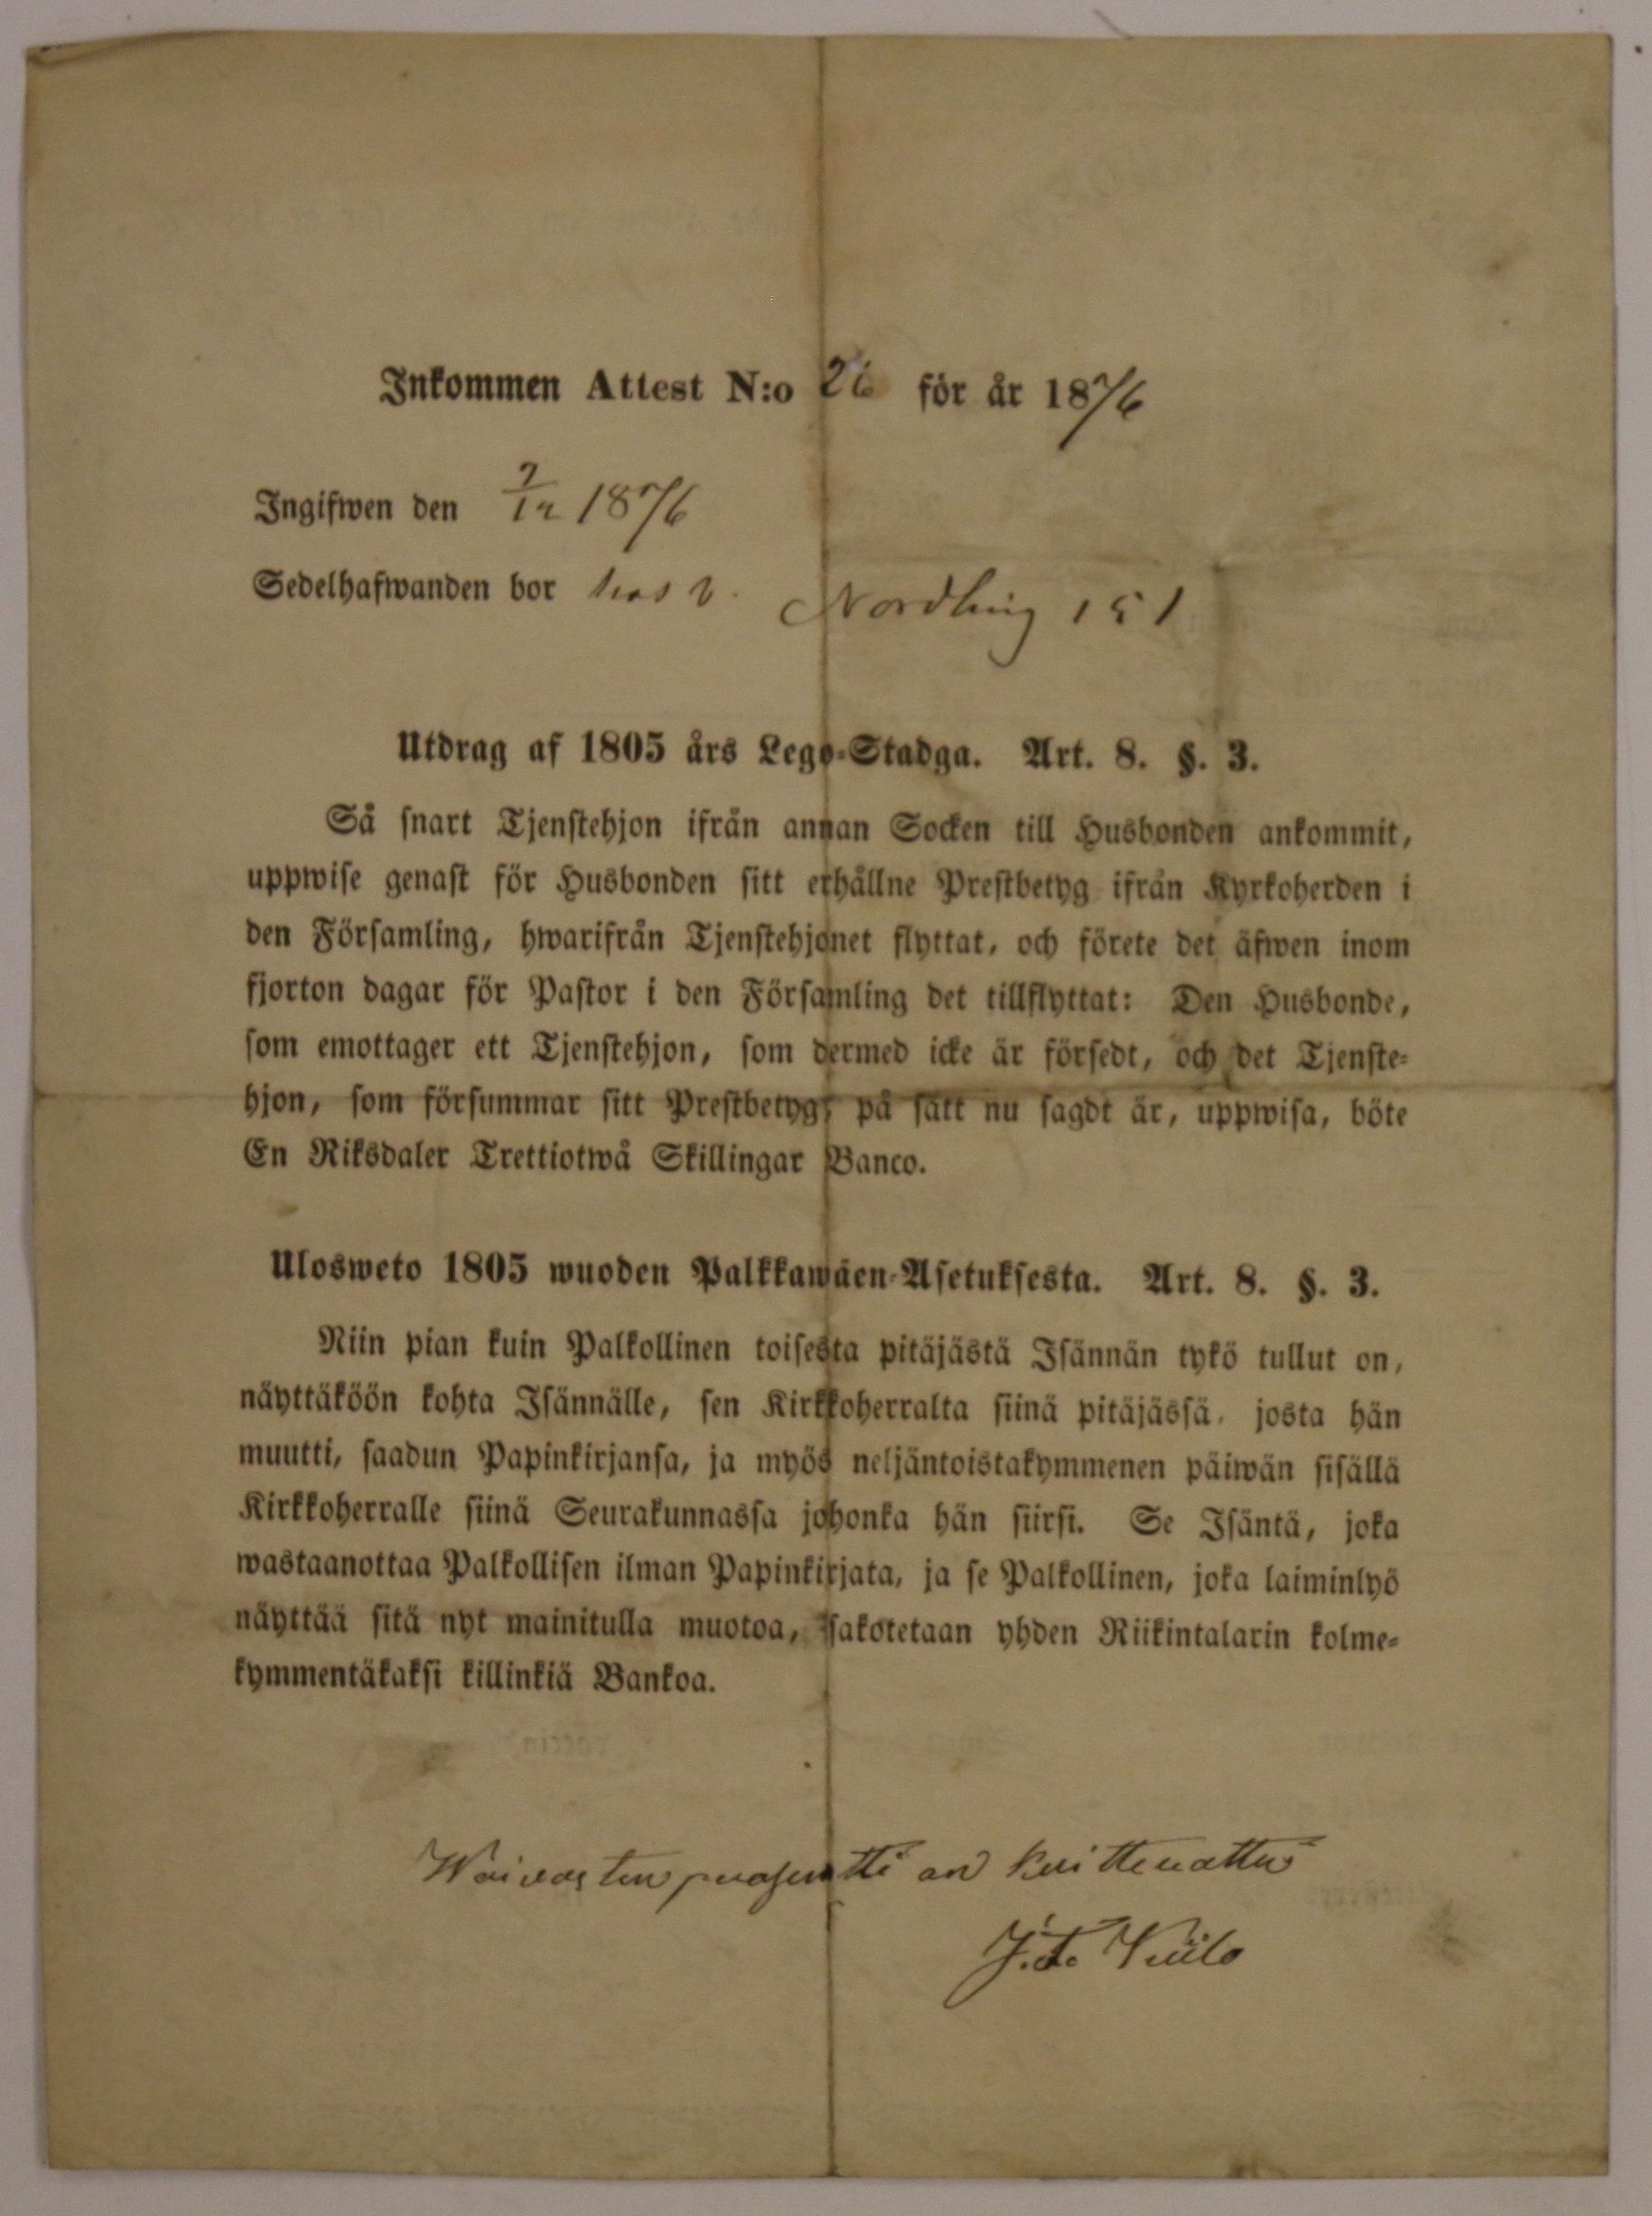 Inkommen Attest N:o 26 för år 1876
Ingifwen den 7/12 1876
Sedelhafwanden bor hos Nordling 151
Utdrag af 1805 års Lego-Stadga. Art. 8. §. 3.
Så snart Tjenstehjon ifrån annan Socken till Husbonden ankommit,
uppwise genast för Husbonden sitt erhållne Prestbetyg ifrån Kyrkoherden i
den Församling, hwarifrån Tjenstehjonet flyttat, och förete det äfwen inom
fjorton dagar för Pastor i den Församling det tillflyttat: Den Husbonde,
som emottager ett Tjenstehjon, som dermed icke är försedt, och det Tjenste-
hjon, som försummar sitt Prestbetyg, på sätt nu sagdt är, uppwisa, böte
En Riksdaler Trettiotwå Skillingar Banco.
Ulosweto 1805 wuoden Palkkawäen-Asetuksesta. Art. 8. §. 3.
Niin pian kuin Palkollinen toisesta pitäjästä Isännän tykö tullut on,
näyttäköön kohta Isännälle, sen Kirkkoherralta siinä pitäjässä, josta hän
muutti, saadun Papinkirjansa, ja myös neljäntoistakymmenen päiwän sisällä
Kirkkoherralle siinä Seurakunnassa johonka hän siirsi. Se Isäntä, joka
wastaanottaa Palkollisen ilman Papinkirjata, ja se Palkollinen, joka laiminlyö
näyttää sitä nyt mainitulla muotoa, sakotetaan yhden Riikintalarin kolme-
kymmentäkaksi killinkiä Bankoa.
Waivasten prosentti on kuittenattu